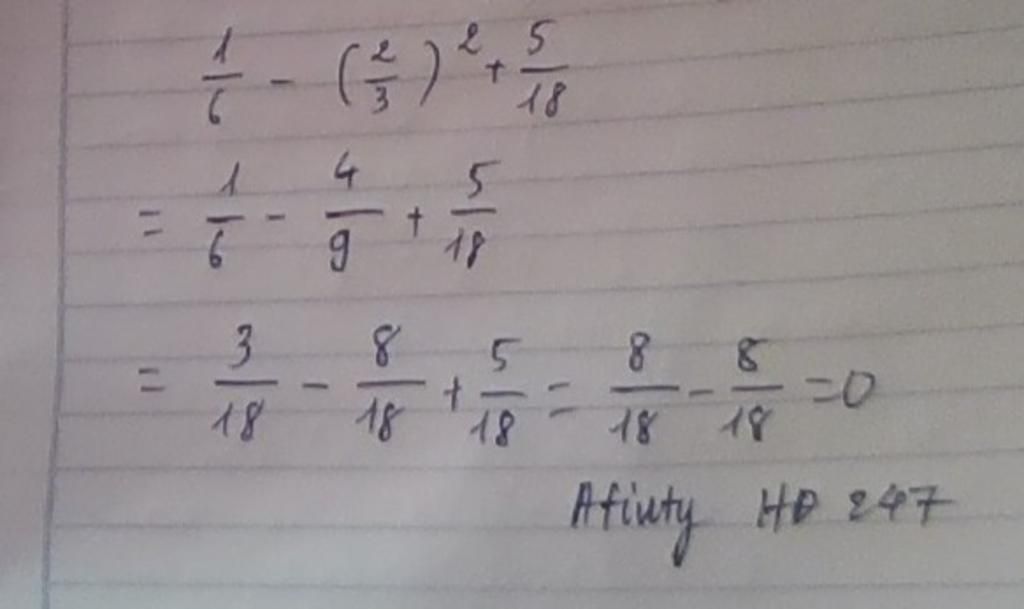 1/6 - (2/3)² + 5/18
= 1/6 - 4/9 + 5/18
= 3/18 - 8/18 + 5/18 = 8/18 - 8/18 = 0
Afiuty HD 247